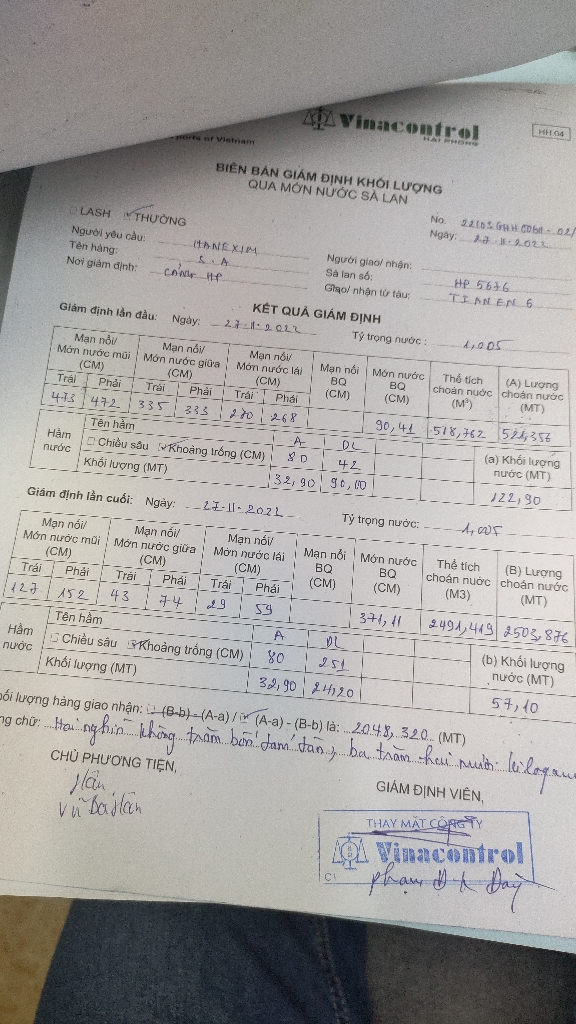 ports of Vietnam
Vinacontrol
HAI PHONG
HH.04
BIÊN BẢN GIÁM ĐỊNH KHỐI LƯỢNG
QUA MỚN NƯỚC SÀ LAN
LASH THƯỜNG
No:
Ngày: 27-11-2022
Người yêu cầu: HANEXIM
Người giao/ nhận:
Tên hàng: S.A
Sà lan số: HP 5676
Nơi giám định: CẢNG HP
Giao/ nhận từ tàu: TIAN EN 6
KẾT QUẢ GIÁM ĐỊNH
Giám định lần đầu: Ngày: 27-11-2022 Tỷ trọng nước: 1,005
Mạn nổi/ Mớn nước mũi (CM) Mạn nổi/ Mớn nước giữa (CM) Mạn nổi/ Mớn nước lái (CM) Mạn nổi BQ (CM) Mớn nước BQ (CM) Thể tích choán nước (M³) (A) Lượng choán nước (MT)
Trái Phải Trái Phải Trái Phải
473 472 335 333 270 268 90,41 518,762 521,356
Hầm nước
Tên hầm A DL
Chiều sâu Khoảng trống (CM) 80 42 (a) Khối lượng nước (MT)
Khối lượng (MT) 32,90 90,00 122,90
Giám định lần cuối: Ngày: 27-11-2022 Tỷ trọng nước: 1,005
Mạn nổi/ Mớn nước mũi (CM) Mạn nổi/ Mớn nước giữa (CM) Mạn nổi/ Mớn nước lái (CM) Mạn nổi BQ (CM) Mớn nước BQ (CM) Thể tích choán nước (M3) (B) Lượng choán nước (MT)
Trái Phải Trái Phải Trái Phải
127 152 43 74 29 59 371,11 2491,419 2503,876
Hầm nước
Tên hầm A DL
Chiều sâu Khoảng trống (CM) 80 251 (b) Khối lượng nước (MT)
Khối lượng (MT) 32,90 24,20 57,10
hối lượng hàng giao nhận: (B-b) - (A-a) / (A-a) - (B-b) là: 2048,320 (MT)
ng chữ: Hai nghìn không trăm bốn tám tấn, ba trăm hai mươi kilogam
CHỦ PHƯƠNG TIỆN,
GIÁM ĐỊNH VIÊN,
Hân
Vũ Bá Hân
THAY MẶT CÔNG TY
Vinacontrol